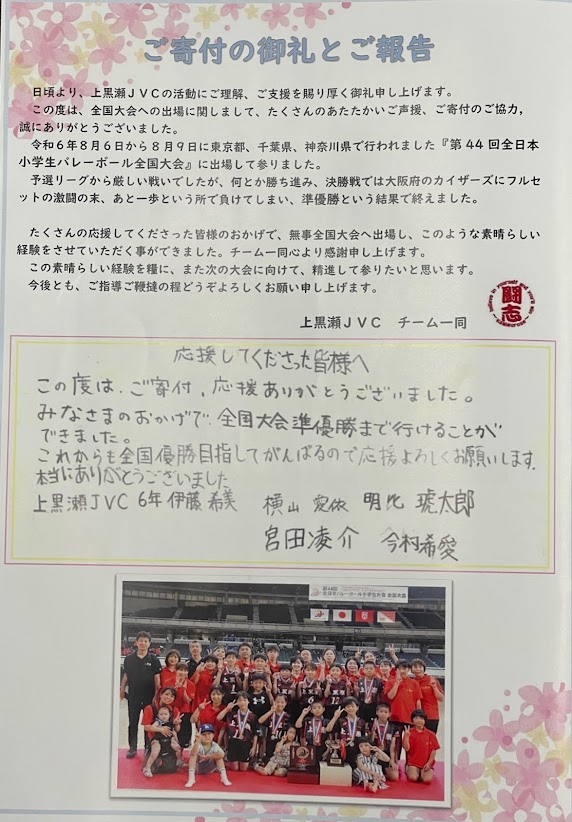 ご寄付の御礼とご報告
日頃より、上黒瀬JVCの活動にご理解、ご支援を賜り厚く御礼申し上げます。
この度は、全国大会への出場に関しまして、たくさんのあたたかいご声援、ご寄付のご協力，
誠にありがとうございました。
令和6年8月6日から8月9日に東京都、千葉県、神奈川県で行われました『第44回全日本
小学生バレーボール全国大会』に出場して参りました。
予選リーグから厳しい戦いでしたが、何とか勝ち進み、決勝戦では大阪府のカイザーズにフルセ
ットの激闘の末、あと一歩という所で負けてしまい、準優勝という結果で終えました。
たくさんの応援してくださった皆様のおかげで、無事全国大会へ出場し、このような素晴らしい
経験をさせていただく事ができました。チーム一同心より感謝申し上げます。
この素晴らしい経験を糧に、また次の大会に向けて、精進して参りたいと思います。
今後とも、ご指導ご鞭撻の程どうぞよろしくお願い申し上げます。
上黒瀬JVC チーム一同
闘志
応援してくださった皆様へ
この度は、ご寄付、応援ありがとうございました。
みなさまのおかげで、全国大会準優勝まで行けることが
できました。
これからも全国優勝目指してがんばるので応援よろしくお願いします。
本当にありがとうございました
上黒瀬JVC 6年 伊藤 希美 横山 愛依 明比 琥太郎
宮田凌介 今村希愛